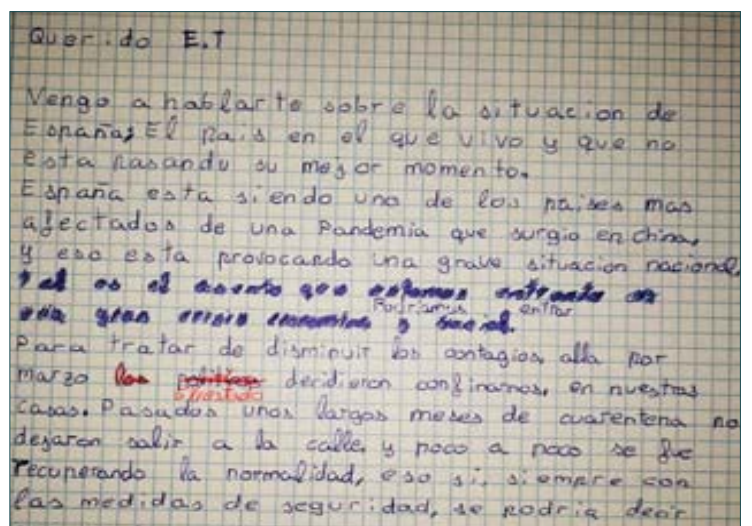 Querido E.T
Vengo a hablarte sobre la situacion de
España, El pais en el que vivo y que no
esta pasando su mejor momento.
España esta siendo uno de los paises mas
afectados de una Pandemia que surgio en China,
y eso esta provocando una grave situacion nacional,
tal es el asunto que estamos entrando en
Podriamos entrar
una gran crisis economica y social.
Para tratar de disminuir los contagios, alla por
marzo los politicos decidieron confinarnos, en nuestras
el estado
casas. Pasados unos largos meses de cuarentena no
dejaron salir a la calle, y poco a poco se fue
recuperando la normalidad, eso si, siempre con
las medidas de seguridad, se podria decir